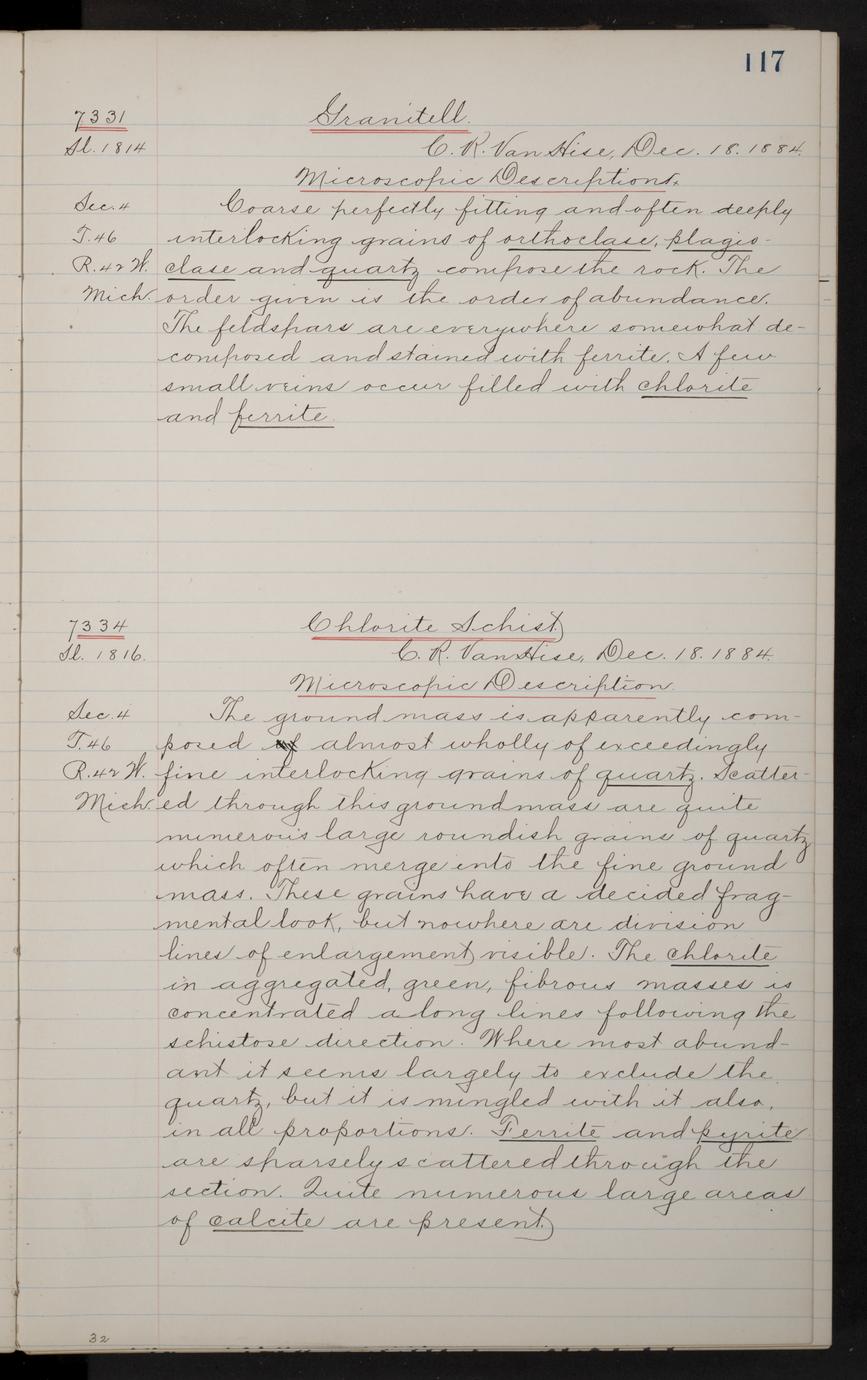 117
7331 Granitell.
Sl. 1814 C. R. Van Hise, Dec. 18. 1884.
Microscopic Descriptions.
Sec. 4 Coarse perfectly fitting and often deeply
T. 46 interlocking grains of orthoclase, plagio-
R. 42 W. clase and quartz compose the rock. The
Mich. order given is the order of abundance.
The feldspars are everywhere somewhat de-
composed and stained with ferrite. A few
small veins occur filled with chlorite
and ferrite.
7334 Chlorite Schist
Sl. 1816. C. R. Van Hise, Dec. 18. 1884.
Microscopic Description.
Sec. 4 The ground mass is apparently com-
T. 46 posed of almost wholly of exceedingly
R. 42 W. fine interlocking grains of quartz. Scatter-
Mich. ed through this groundmass are quite
numerous large roundish grains of quartz
which often merge into the fine ground
mass. These grains have a decided frag-
mental look, but nowhere are division
lines of enlargement visible. The chlorite
in aggregated, green, fibrous masses is
concentrated along lines following the
schistose direction. Where most abund-
ant it seems largely to exclude the
quartz, but it is mingled with it also,
in all proportions. Ferrite and pyrite
are sparsely scattered through the
section. Quite numerous large areas
of calcite are present
32